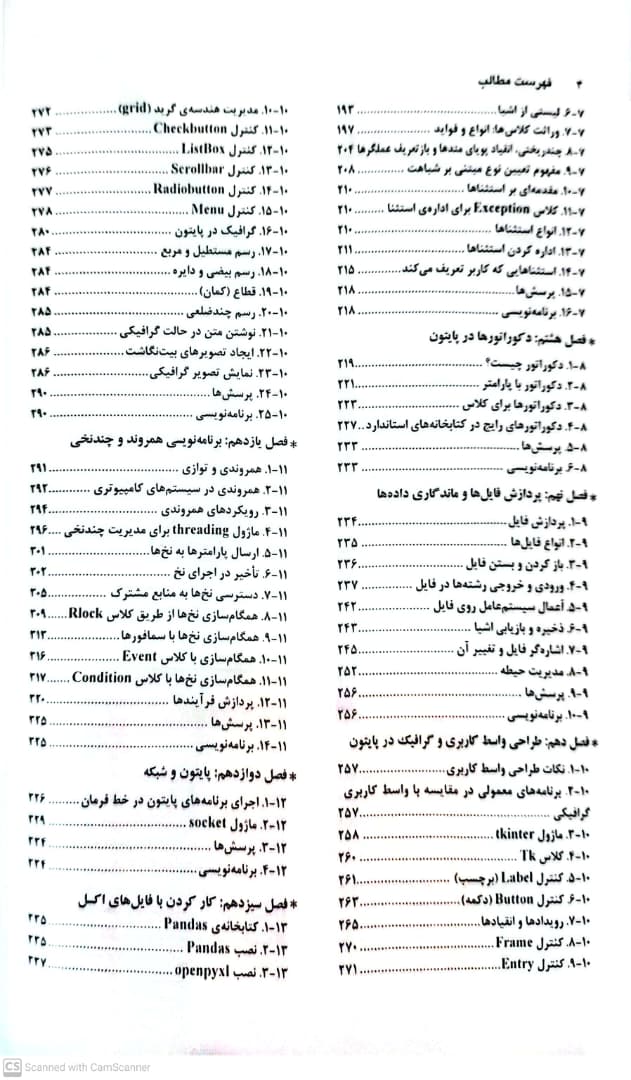 ۴ فهرست مطالب
۷-۶. لیستی از اشیا ........ ۱۹۳
۷-۷. وراثت کلاس‌ها: انواع و فواید ........ ۱۹۷
۷-۸. چندریختی، انقیاد پویای متدها و بازتعریف عملگرها ۲۰۴
۷-۹. مفهوم تعیین نوع مبتنی بر شباهت ........ ۲۰۸
۷-۱۰. مقدمه‌ای بر استثناها ........ ۲۱۰
۷-۱۱. کلاس Exception برای اداره‌ی استثنا ........ ۲۱۰
۷-۱۲. انواع استثناها ........ ۲۱۰
۷-۱۳. اداره کردن استثناها ........ ۲۱۱
۷-۱۴. استثناهایی که کاربر تعریف می‌کند ........ ۲۱۵
۷-۱۵. پرسش‌ها ........ ۲۱۸
۷-۱۶. برنامه‌نویسی ........ ۲۱۸
* فصل هشتم: دکوراتورها در پایتون
۸-۱. دکوراتور چیست؟ ........ ۲۱۹
۸-۲. دکوراتور با پارامتر ........ ۲۲۱
۸-۳. دکوراتورها برای کلاس ........ ۲۲۳
۸-۴. دکوراتورهای رایج در کتابخانه‌های استاندارد .. ۲۲۷
۸-۵. پرسش‌ها ........ ۲۳۳
۸-۶. برنامه‌نویسی ........ ۲۳۳
* فصل نهم: پردازش فایل‌ها و ماندگاری داده‌ها
۹-۱. پردازش فایل ........ ۲۳۴
۹-۲. انواع فایل‌ها ........ ۲۳۵
۹-۳. باز کردن و بستن فایل ........ ۲۳۶
۹-۴. ورودی و خروجی رشته‌ها در فایل ........ ۲۳۷
۹-۵. اعمال سیستم‌عامل روی فایل ........ ۲۴۲
۹-۶. ذخیره و بازیابی اشیا ........ ۲۴۳
۹-۷. اشاره‌گر فایل و تغییر آن ........ ۲۴۵
۹-۸. مدیریت حیطه ........ ۲۵۲
۹-۹. پرسش‌ها ........ ۲۵۶
۹-۱۰. برنامه‌نویسی ........ ۲۵۶
* فصل دهم: طراحی واسط کاربری و گرافیک در پایتون
۱۰-۱. نکات طراحی واسط کاربری ........ ۲۵۷
۱۰-۲. برنامه‌های معمولی در مقایسه با واسط کاربری
گرافیکی ........ ۲۵۷
۱۰-۳. ماژول tkinter ........ ۲۵۸
۱۰-۴. کلاس Tk ........ ۲۶۰
۱۰-۵. کنترل Label (برچسب) ........ ۲۶۱
۱۰-۶. کنترل Button (دکمه) ........ ۲۶۳
۱۰-۷. رویدادها و انقیادها ........ ۲۶۵
۱۰-۸. کنترل Frame ........ ۲۷۰
۱۰-۹. کنترل Entry ........ ۲۷۱
۱۰-۱۰. مدیریت هندسه‌ی گرید (grid) ........ ۲۷۲
۱۰-۱۱. کنترل Checkbutton ........ ۲۷۳
۱۰-۱۲. کنترل ListBox ........ ۲۷۵
۱۰-۱۳. کنترل Scrollbar ........ ۲۷۶
۱۰-۱۴. کنترل Radiobutton ........ ۲۷۷
۱۰-۱۵. کنترل Menu ........ ۲۷۸
۱۰-۱۶. گرافیک در پایتون ........ ۲۸۰
۱۰-۱۷. رسم مستطیل و مربع ........ ۲۸۴
۱۰-۱۸. رسم بیضی و دایره ........ ۲۸۴
۱۰-۱۹. قطاع (کمان) ........ ۲۸۴
۱۰-۲۰. رسم چندضلعی ........ ۲۸۵
۱۰-۲۱. نوشتن متن در حالت گرافیکی ........ ۲۸۵
۱۰-۲۲. ایجاد تصویرهای بیت‌نگاشت ........ ۲۸۶
۱۰-۲۳. نمایش تصویر گرافیکی ........ ۲۸۶
۱۰-۲۴. پرسش‌ها ........ ۲۹۰
۱۰-۲۵. برنامه‌نویسی ........ ۲۹۰
* فصل یازدهم: برنامه‌نویسی همروند و چندنخی
۱۱-۱. همروندی و توازی ........ ۲۹۱
۱۱-۲. همروندی در سیستم‌های کامپیوتری ........ ۲۹۲
۱۱-۳. رویکردهای همروندی ........ ۲۹۴
۱۱-۴. ماژول threading برای مدیریت چندنخی .... ۲۹۶
۱۱-۵. ارسال پارامترها به نخ‌ها ........ ۳۰۱
۱۱-۶. تأخیر در اجرای نخ ........ ۳۰۲
۱۱-۷. دسترسی نخ‌ها به منابع مشترک ........ ۳۰۵
۱۱-۸. همگام‌سازی نخ‌ها از طریق کلاس Rlock ..... ۳۰۹
۱۱-۹. همگام‌سازی نخ‌ها با سمافورها ........ ۳۱۳
۱۱-۱۰. همگام‌سازی با کلاس Event ........ ۳۱۶
۱۱-۱۱. همگام‌سازی نخ‌ها با کلاس Condition ...... ۳۱۷
۱۱-۱۲. پردازش فرآیندها ........ ۳۲۰
۱۱-۱۳. پرسش‌ها ........ ۳۲۵
۱۱-۱۴. برنامه‌نویسی ........ ۳۲۵
* فصل دوازدهم: پایتون و شبکه
۱۲-۱. اجرای برنامه‌های پایتون در خط فرمان ........ ۳۲۶
۱۲-۲. ماژول socket ........ ۳۲۹
۱۲-۳. پرسش‌ها ........ ۳۳۴
۱۲-۴. برنامه‌نویسی ........ ۳۳۴
* فصل سیزدهم: کار کردن با فایل‌های اکسل
۱۳-۱. کتابخانه‌ی Pandas ........ ۳۳۵
۱۳-۲. نصب Pandas ........ ۳۳۵
۱۳-۳. نصب openpyxl ........ ۳۳۷
CS Scanned with CamScanner